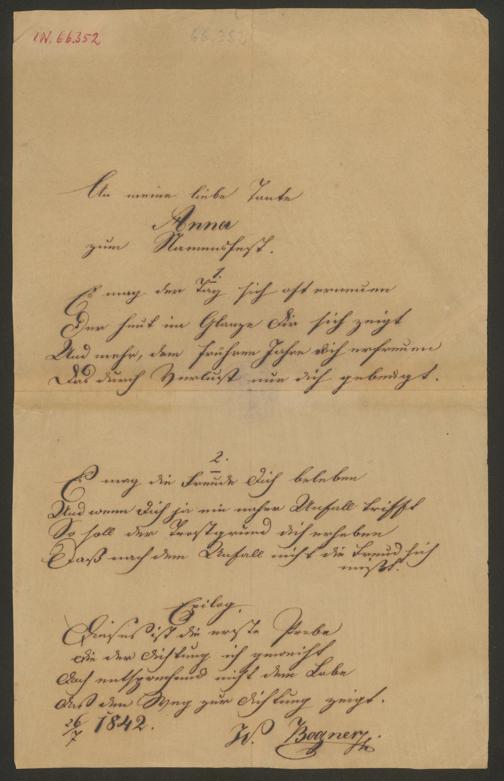 IN. 66.352
66.352
An meine liebe Tante
Anna
zum Namensfest.
1.
Es mag der Tag sich oft erneuen
Der heut im Glanze Dir sich zeigt
Und mehr, dem frühern Jahre dich erfreuen
Das durch Verlust nur dich gebeugt.
2.
Es mag die Freude Dich beleben
Und wenn Dich ja ein naher Unfall trifft
So soll der Trostgrund dich erheben
Daß nach dem Unfall nicht die Freud sich
mißt.
Epilog.
Dieses ist die erste Probe
die der Dichtung ich geweiht
doch entsprechend nicht dem Lobe
das den Weg zur Dichtung zeigt.
26/7 1842.
W. Bogner